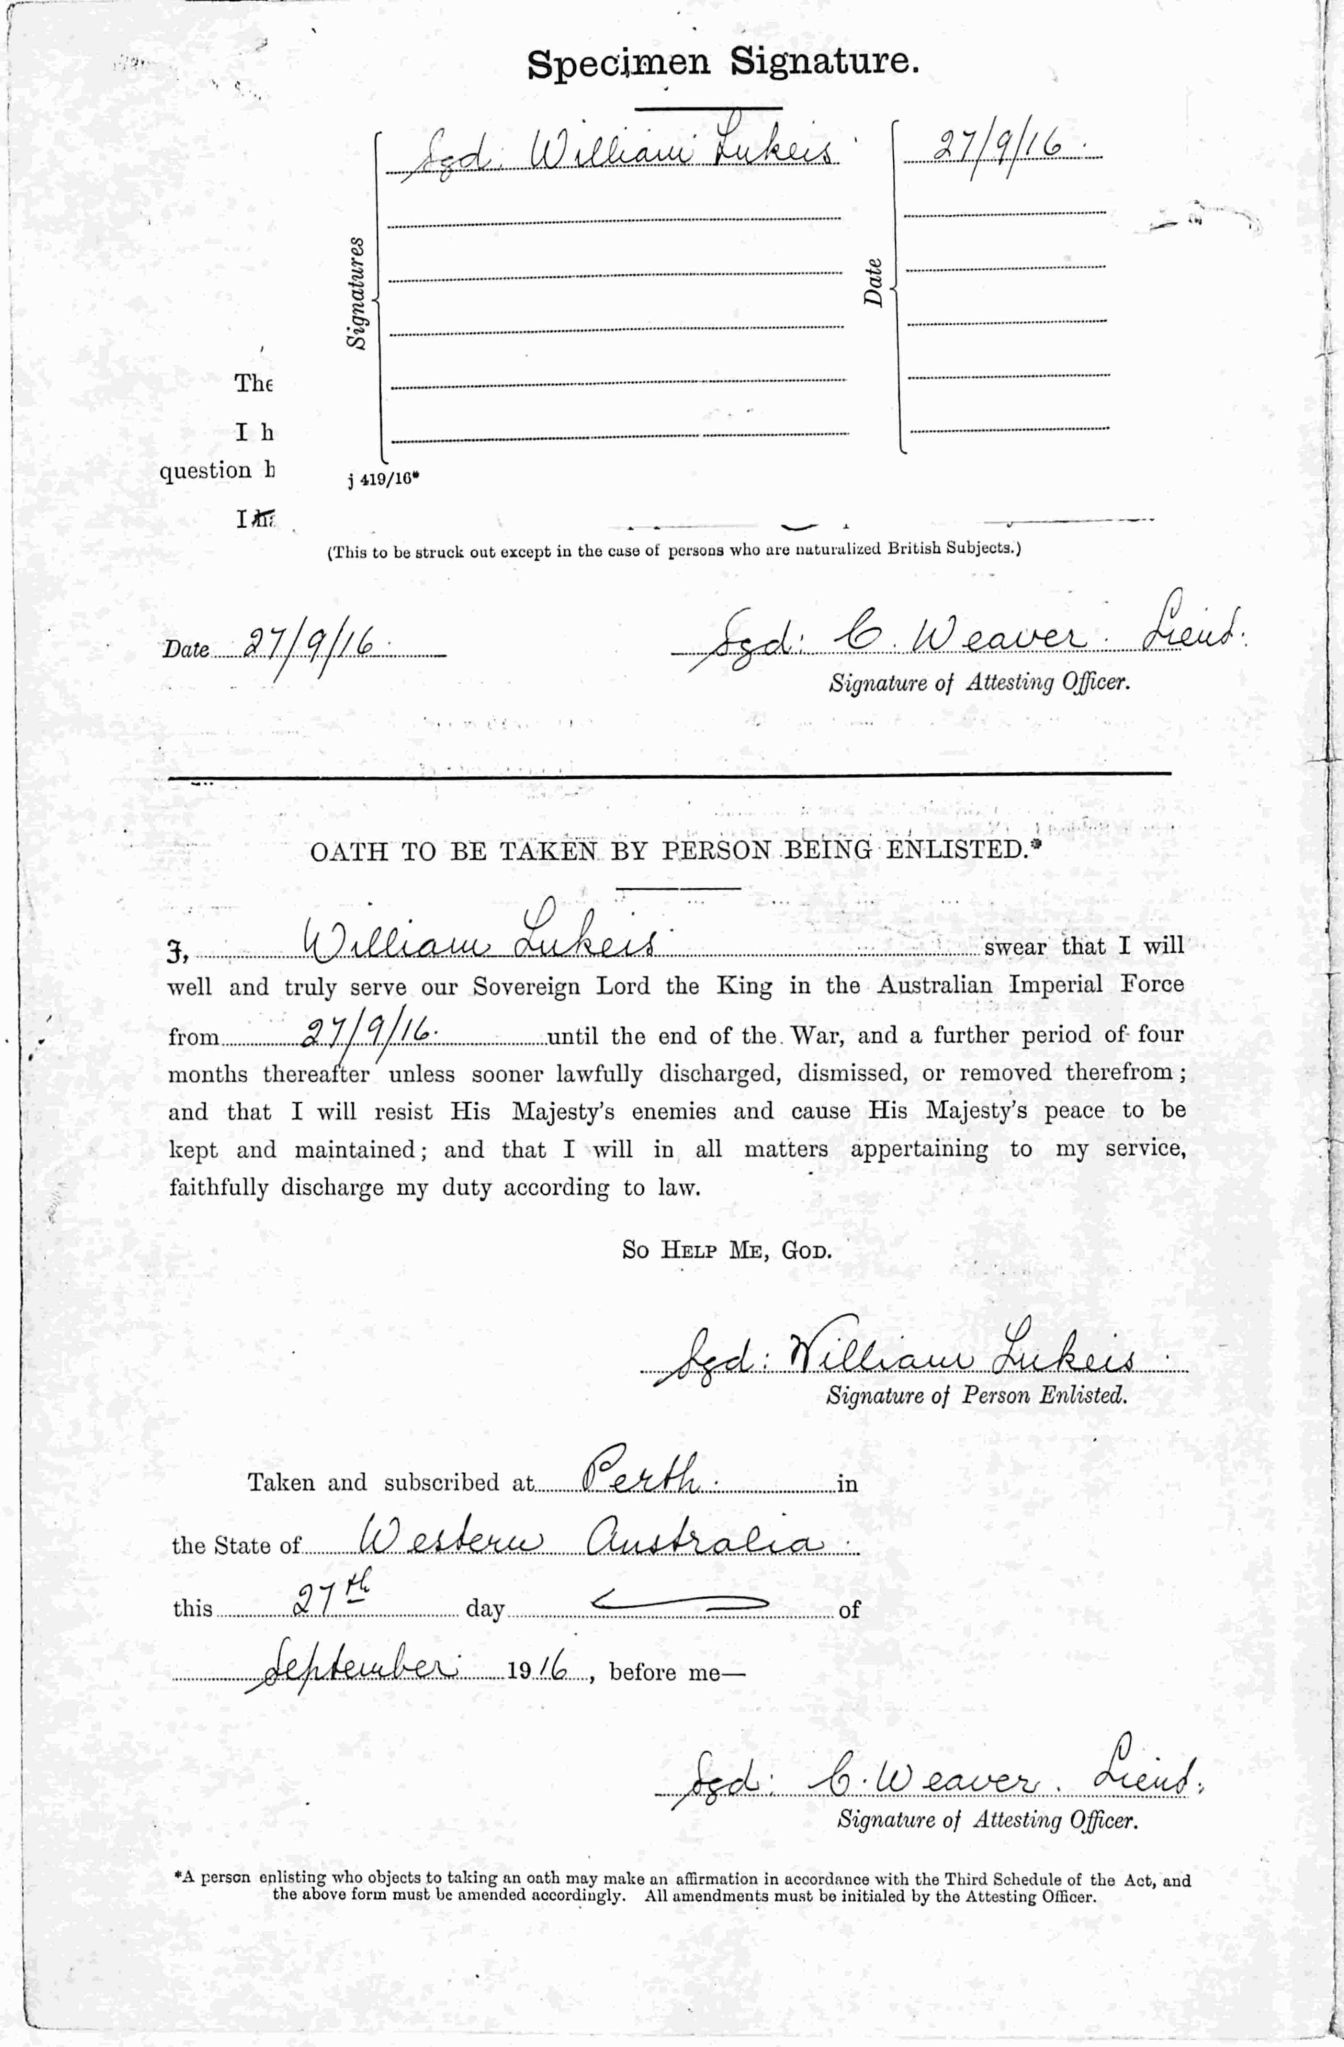 Specimen Signature.
Signatures
Sgd: William Lukeis
Date
27/9/16.
The
I h
question h
j 419/16*
I ha
(This to be struck out except in the case of persons who are naturalized British Subjects.)
Date 27/9/16. Sgd: C. Weaver. Lieut.
Signature of Attesting Officer.
OATH TO BE TAKEN BY PERSON BEING ENLISTED.*
I, William Lukeis swear that I will
well and truly serve our Sovereign Lord the King in the Australian Imperial Force
from 27/9/16. until the end of the War, and a further period of four
months thereafter unless sooner lawfully discharged, dismissed, or removed therefrom;
and that I will resist His Majesty's enemies and cause His Majesty's peace to be
kept and maintained; and that I will in all matters appertaining to my service,
faithfully discharge my duty according to law.
SO HELP ME, GOD.
Sgd: William Lukeis.
Signature of Person Enlisted.
Taken and subscribed at Perth. in
the State of Western Australia.
this 27th day of
September 1916, before me—
Sgd: C. Weaver. Lieut.
Signature of Attesting Officer.
*A person enlisting who objects to taking an oath may make an affirmation in accordance with the Third Schedule of the Act, and
the above form must be amended accordingly. All amendments must be initialed by the Attesting Officer.